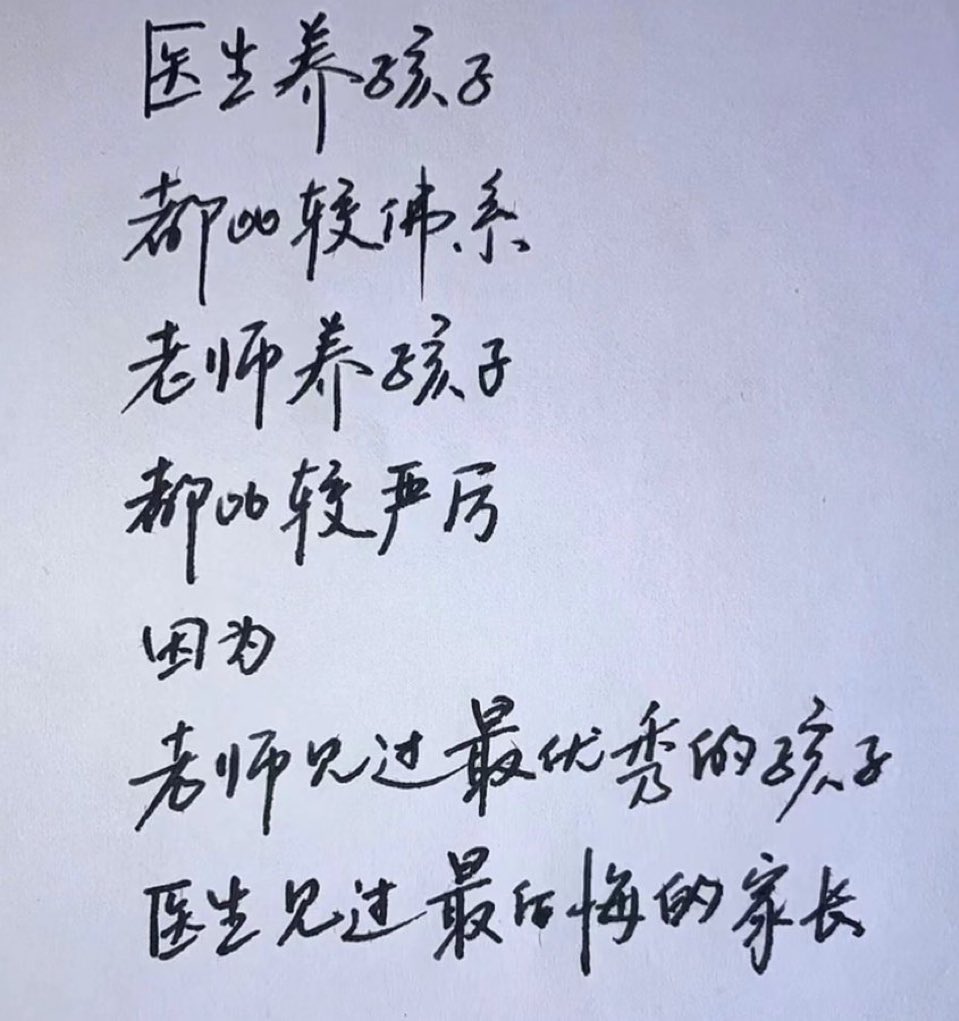 医生养孩子
都比较佛系
老师养孩子
都比较严厉
因为
老师见过最优秀的孩子
医生见过最后悔的家长